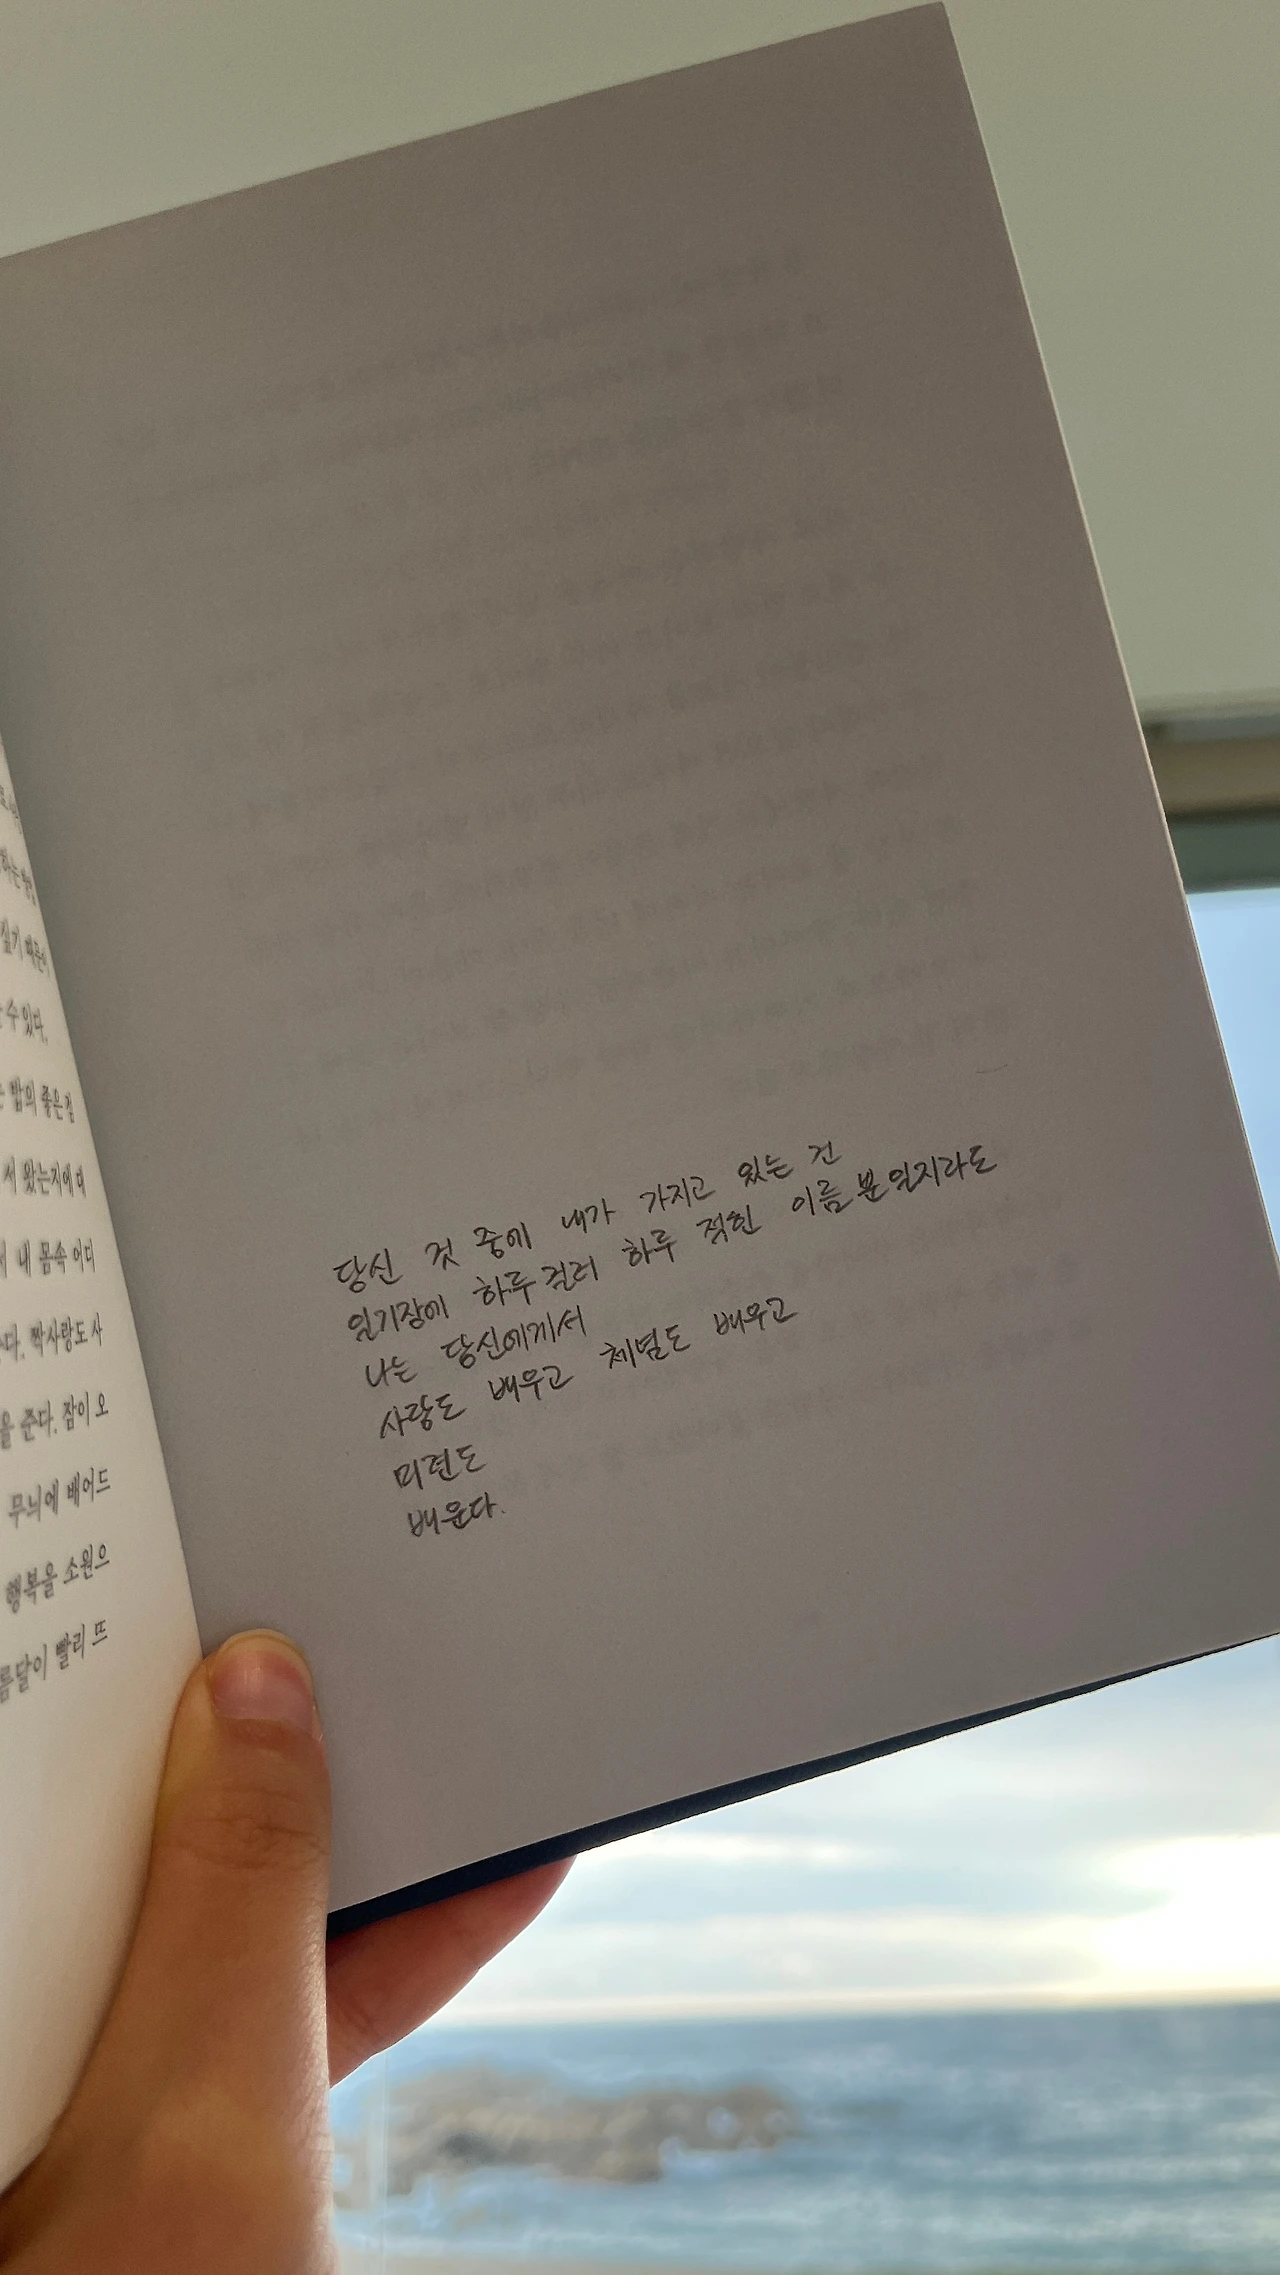 하는
싶기 때문이
수 있다.
밥의 좋은 점
서 왔는지에 대
내 몸속 어디
다. 짝사랑도 사
을 준다. 잠이 오
무늬에 배어드
행복을 소원으
름달이 빨리 뜨
당신 것 중에 내가 가지고 있는 건
일기장에 하루 걸러 하루 적힌 이름 뿐일지라도
나는 당신에게서
사랑도 배우고 체념도 배우고
미련도
배운다.